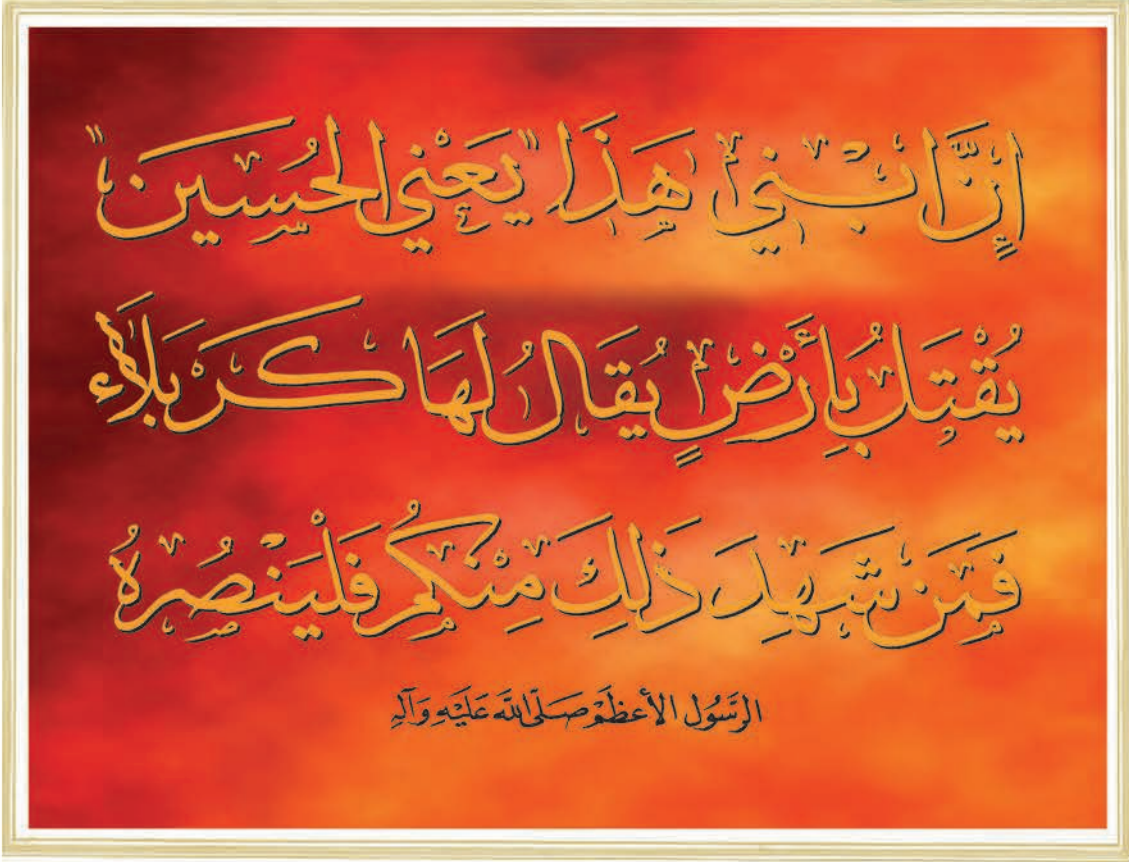 إِنَّ ابْنِي هَذَا "يَعْنِي الحُسَيِن"
يُقْتَلُ بِأَرْضٍ يُقَالُ لَهَا كَرْبَلَاء
فَمَن شَهِدَ ذَلِكَ مِنْكُمْ فَلْيَنْصُرهُ
الرَّسُول الأعظَمْ صَلّى اللَّه عَلَيْهِ وَآلِهِ